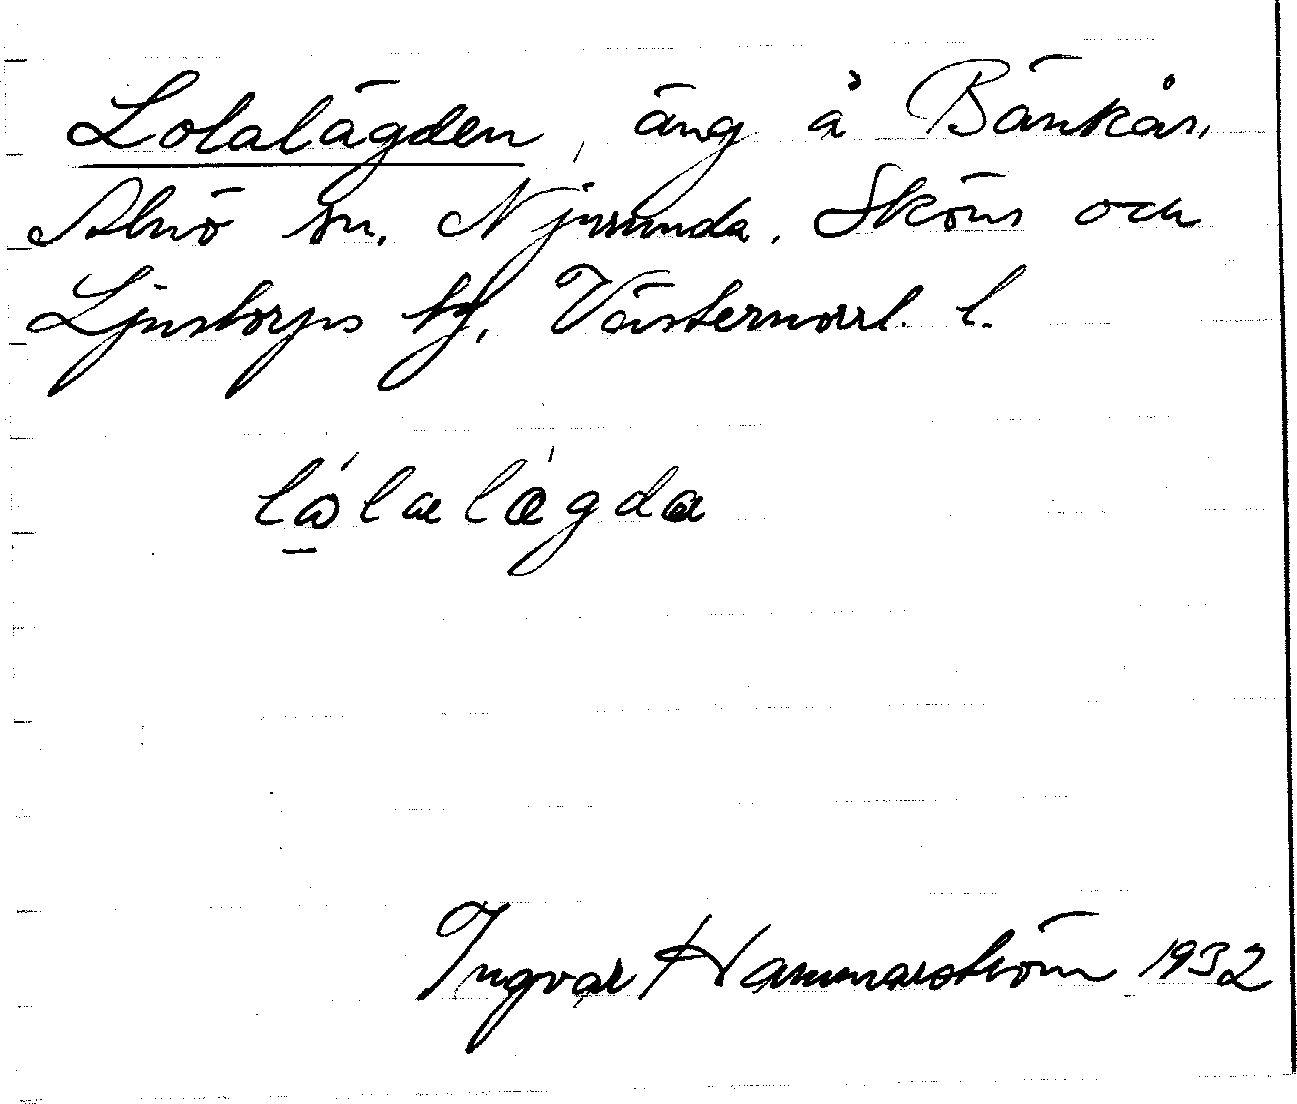 Lolalägden, äng å Bänkås,
Alnö sn. Njurunda, Sköns och
Ljustorps tg, Västernorrl. l.
lólalǻgda
Ingvar Hammarström 1932